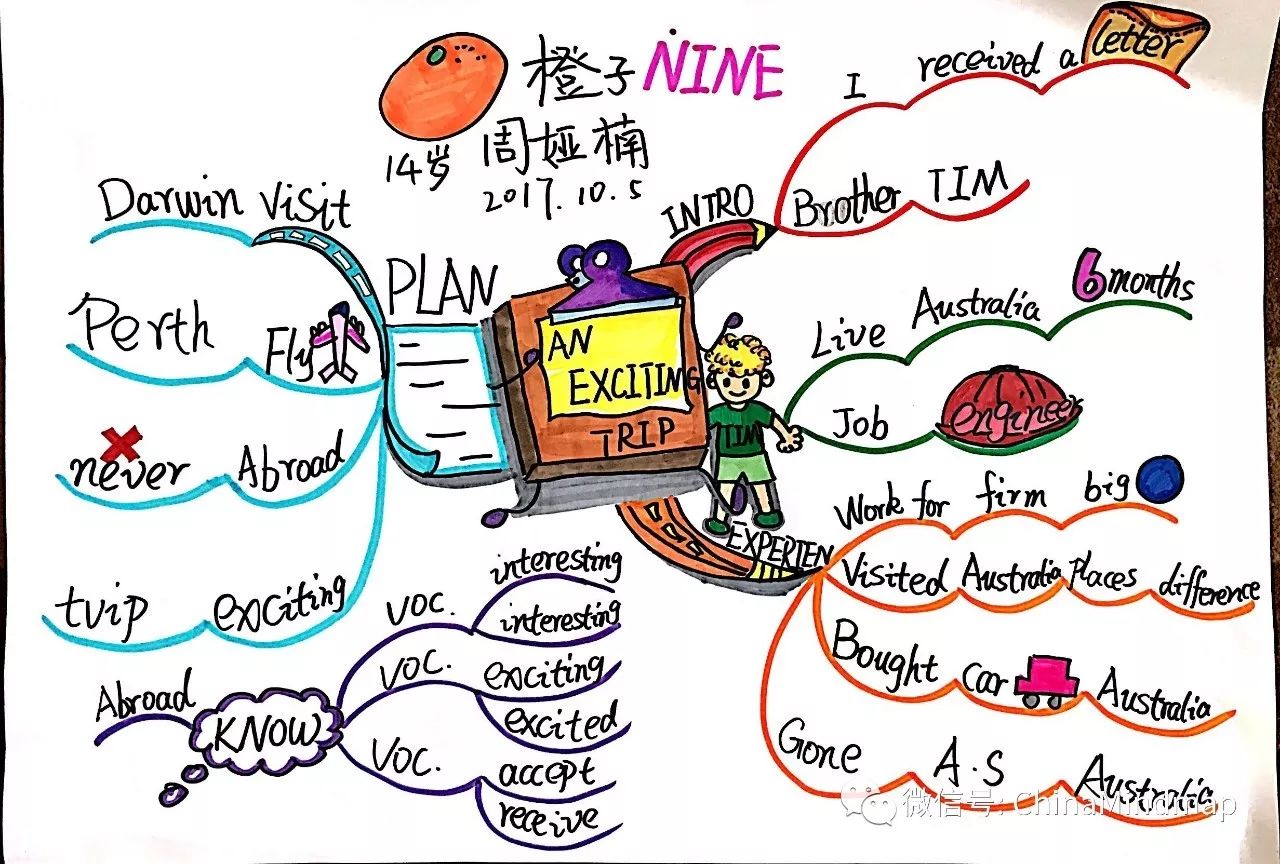 橙子 NINE
14岁 周娅楠
2017.10.5
AN
EXCITING
TRIP
TIM
INTRO
I received a letter
Brother TIM
Live Australia 6 months
Job engineer
EXPERIEN
Work for firm big
Visited Australia Places difference
Bought car Australia
Gone A.S Australia
PLAN
Darwin Visit
Perth Fly
never Abroad
tvip exciting
KNOW
Abroad
VOC.
interesting
interesting
VOC.
exciting
excited
VOC.
accept
receive
微信号: ChinaMindmap